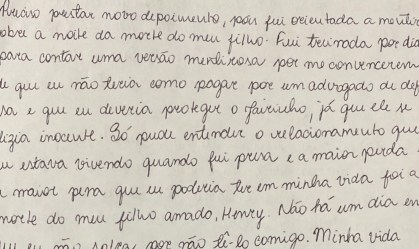 Preciso prestar novo depoimento, pois fui orientada a mentir
sobre a noite da morte do meu filho. Fui treinada por dia
para contar uma versão mentirosa por me convencerem
de que eu não teria como pagar por um advogado de def
sa e que eu deveria proteger o Jairinho, já que ele se
dizia inocente. Só pude entender o relacionamento que
eu estava vivendo quando fui presa e a maior perda
a maior pena que eu poderia ter em minha vida foi a
morte do meu filho amado, Henry. Não há um dia em
que eu não por não tê-lo comigo. Minha vida